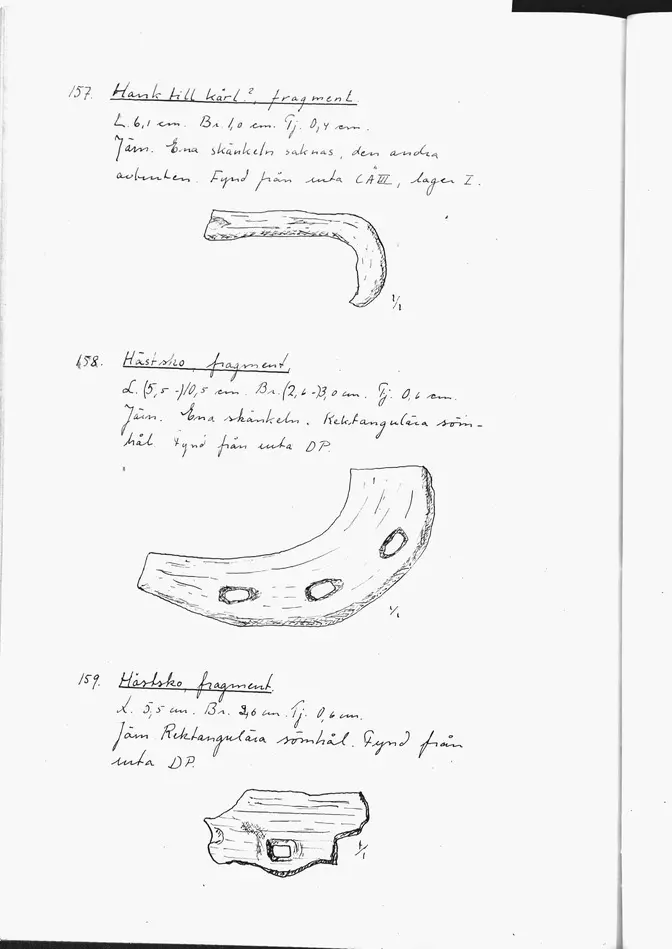 157. Hank till kärl?, fragment.
L. 6,1 cm. Br. 1,0 cm. Tj. 0,4 cm.
Järn. Ena skänkeln saknas, den andra
avbruten. Fynd från ruta CÅVII, lager I.
1/1
158. Hästsko, fragment.
L. (5,5-)10,5 cm. Br. (2,6-)3,0 cm. Tj. 0,6 cm.
Järn. Ena skänkeln. Rektangulära söm-
hål. Fynd från ruta DP.
1/1
159. Hästsko, fragment.
L. 5,5 cm. Br. 2,6 cm. Tj. 0,6 cm.
Järn Rektangulära sömhål. Fynd från
ruta DP.
1/1